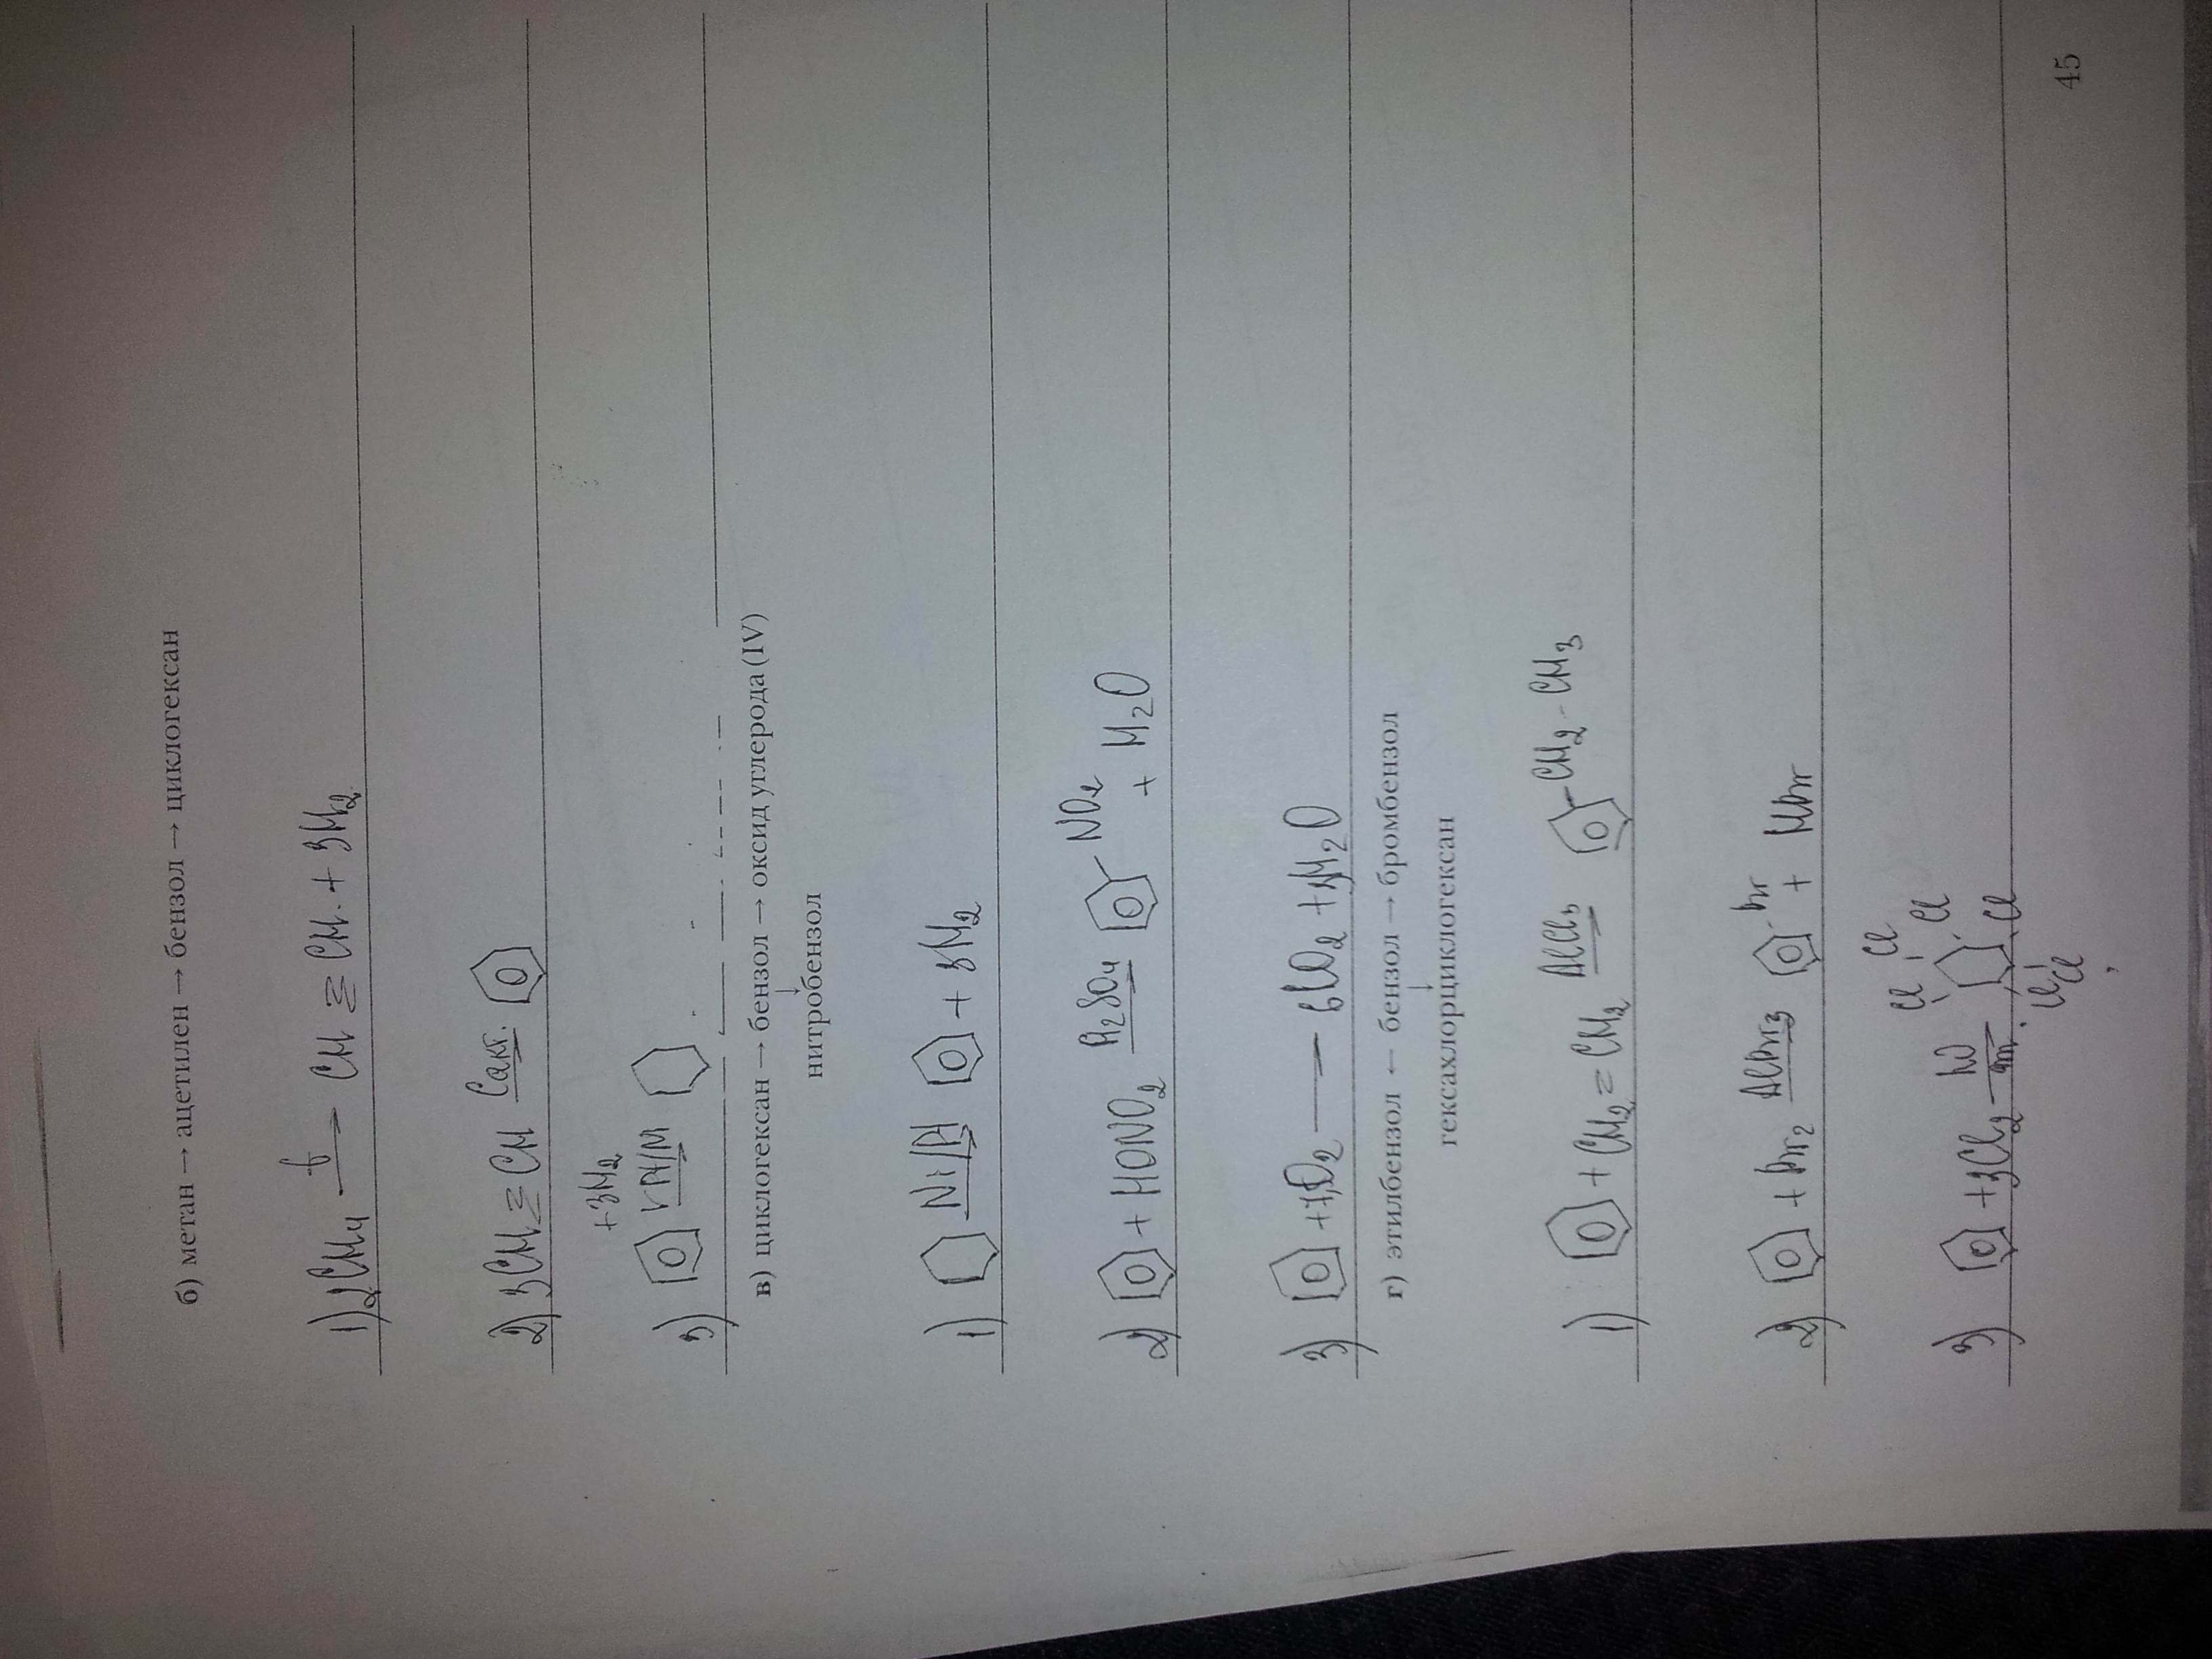 б) метан → ацетилен → бензол → циклогексан
1) 2CH4 t CH ≡ CH + 3H2
2) 3CH ≡ CH Cакт.
+3H2
3)
в) циклогексан → бензол → оксид углерода (IV)
↓
нитробензол
1) Ni/Pt + 3H2
2) + HONO2 H2SO4 NO2 + H2O
3) + O2 6CO2 + H2O
г) этилбензол ← бензол → бромбензол
↓
гексахлорциклогексан
1) + CH2 = CH2 AlCl3 CH2 - CH3
2) + Br2 AlBr3 Br + HBr
3) + 3Cl2 Cl Cl Cl Cl Cl Cl
45